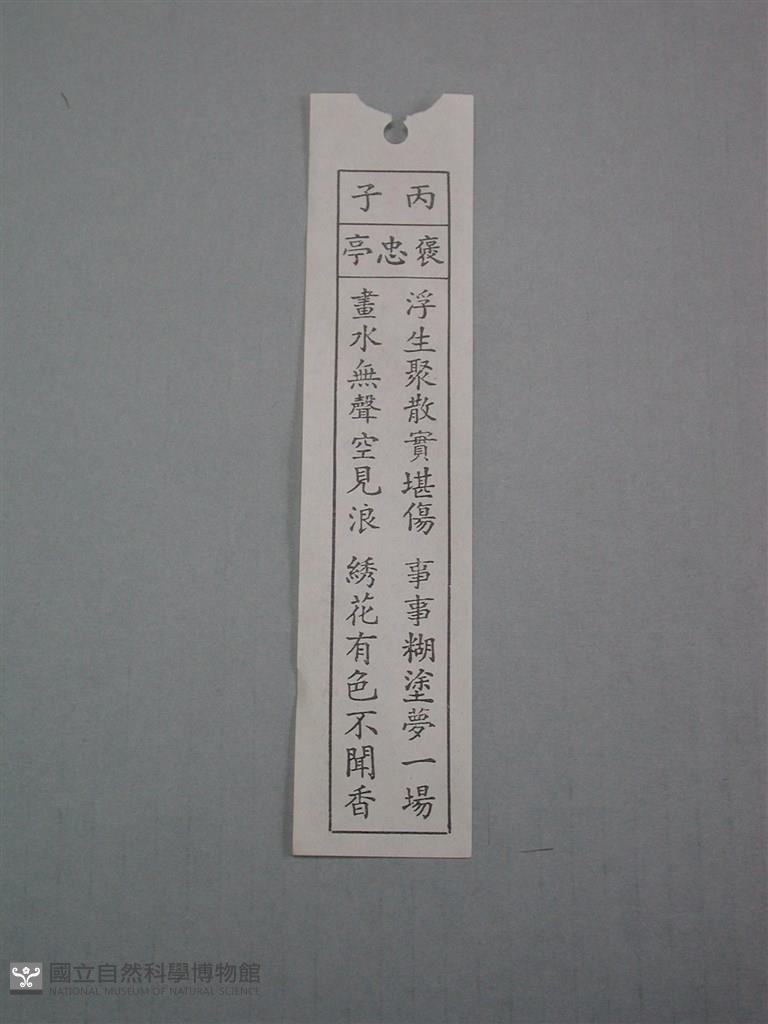 丙子
褒忠亭
浮生聚散實堪傷 事事糊塗夢一場
畫水無聲空見浪 綉花有色不聞香
國立自然科學博物館
NATIONAL MUSEUM OF NATURAL SCIENCE